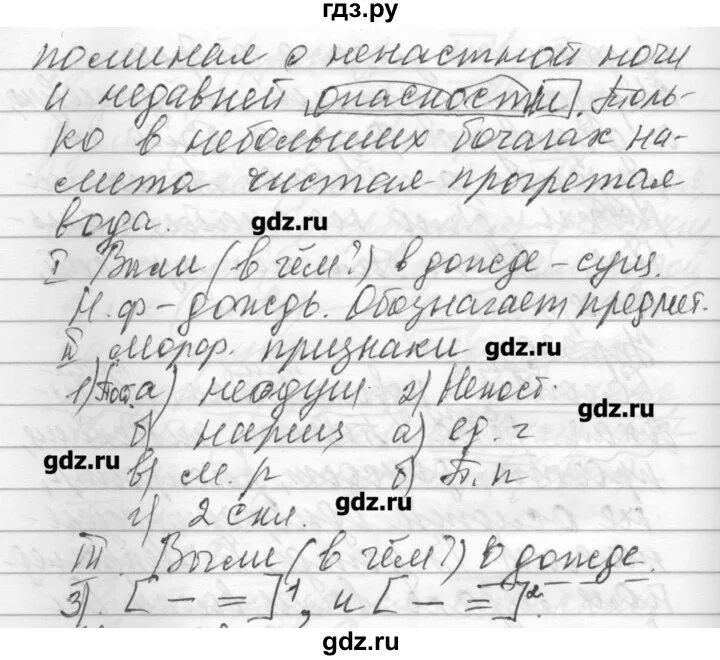 гдз.ру
поминал о ненастной ночи
и недавней опасности. Толь-
ко в небольших бочагах на-
чистая прогретая
вода. gdz.ru
I (в чём?) в дожде – сущ.
Н.ф – дождь. Обозначает предмет.
II морф. признаки gdz.ru
1) Пост. а) неодуш. 2) Непост.
gdz.ru
б) нариц а) ед. ч
gdz.ru
в) м. р б) П. п
gdz.ru
г) 2 скл.
III. (в чём?) в дожде.
3). [ – = ]¹, и [ – = ]².
gdz.ru